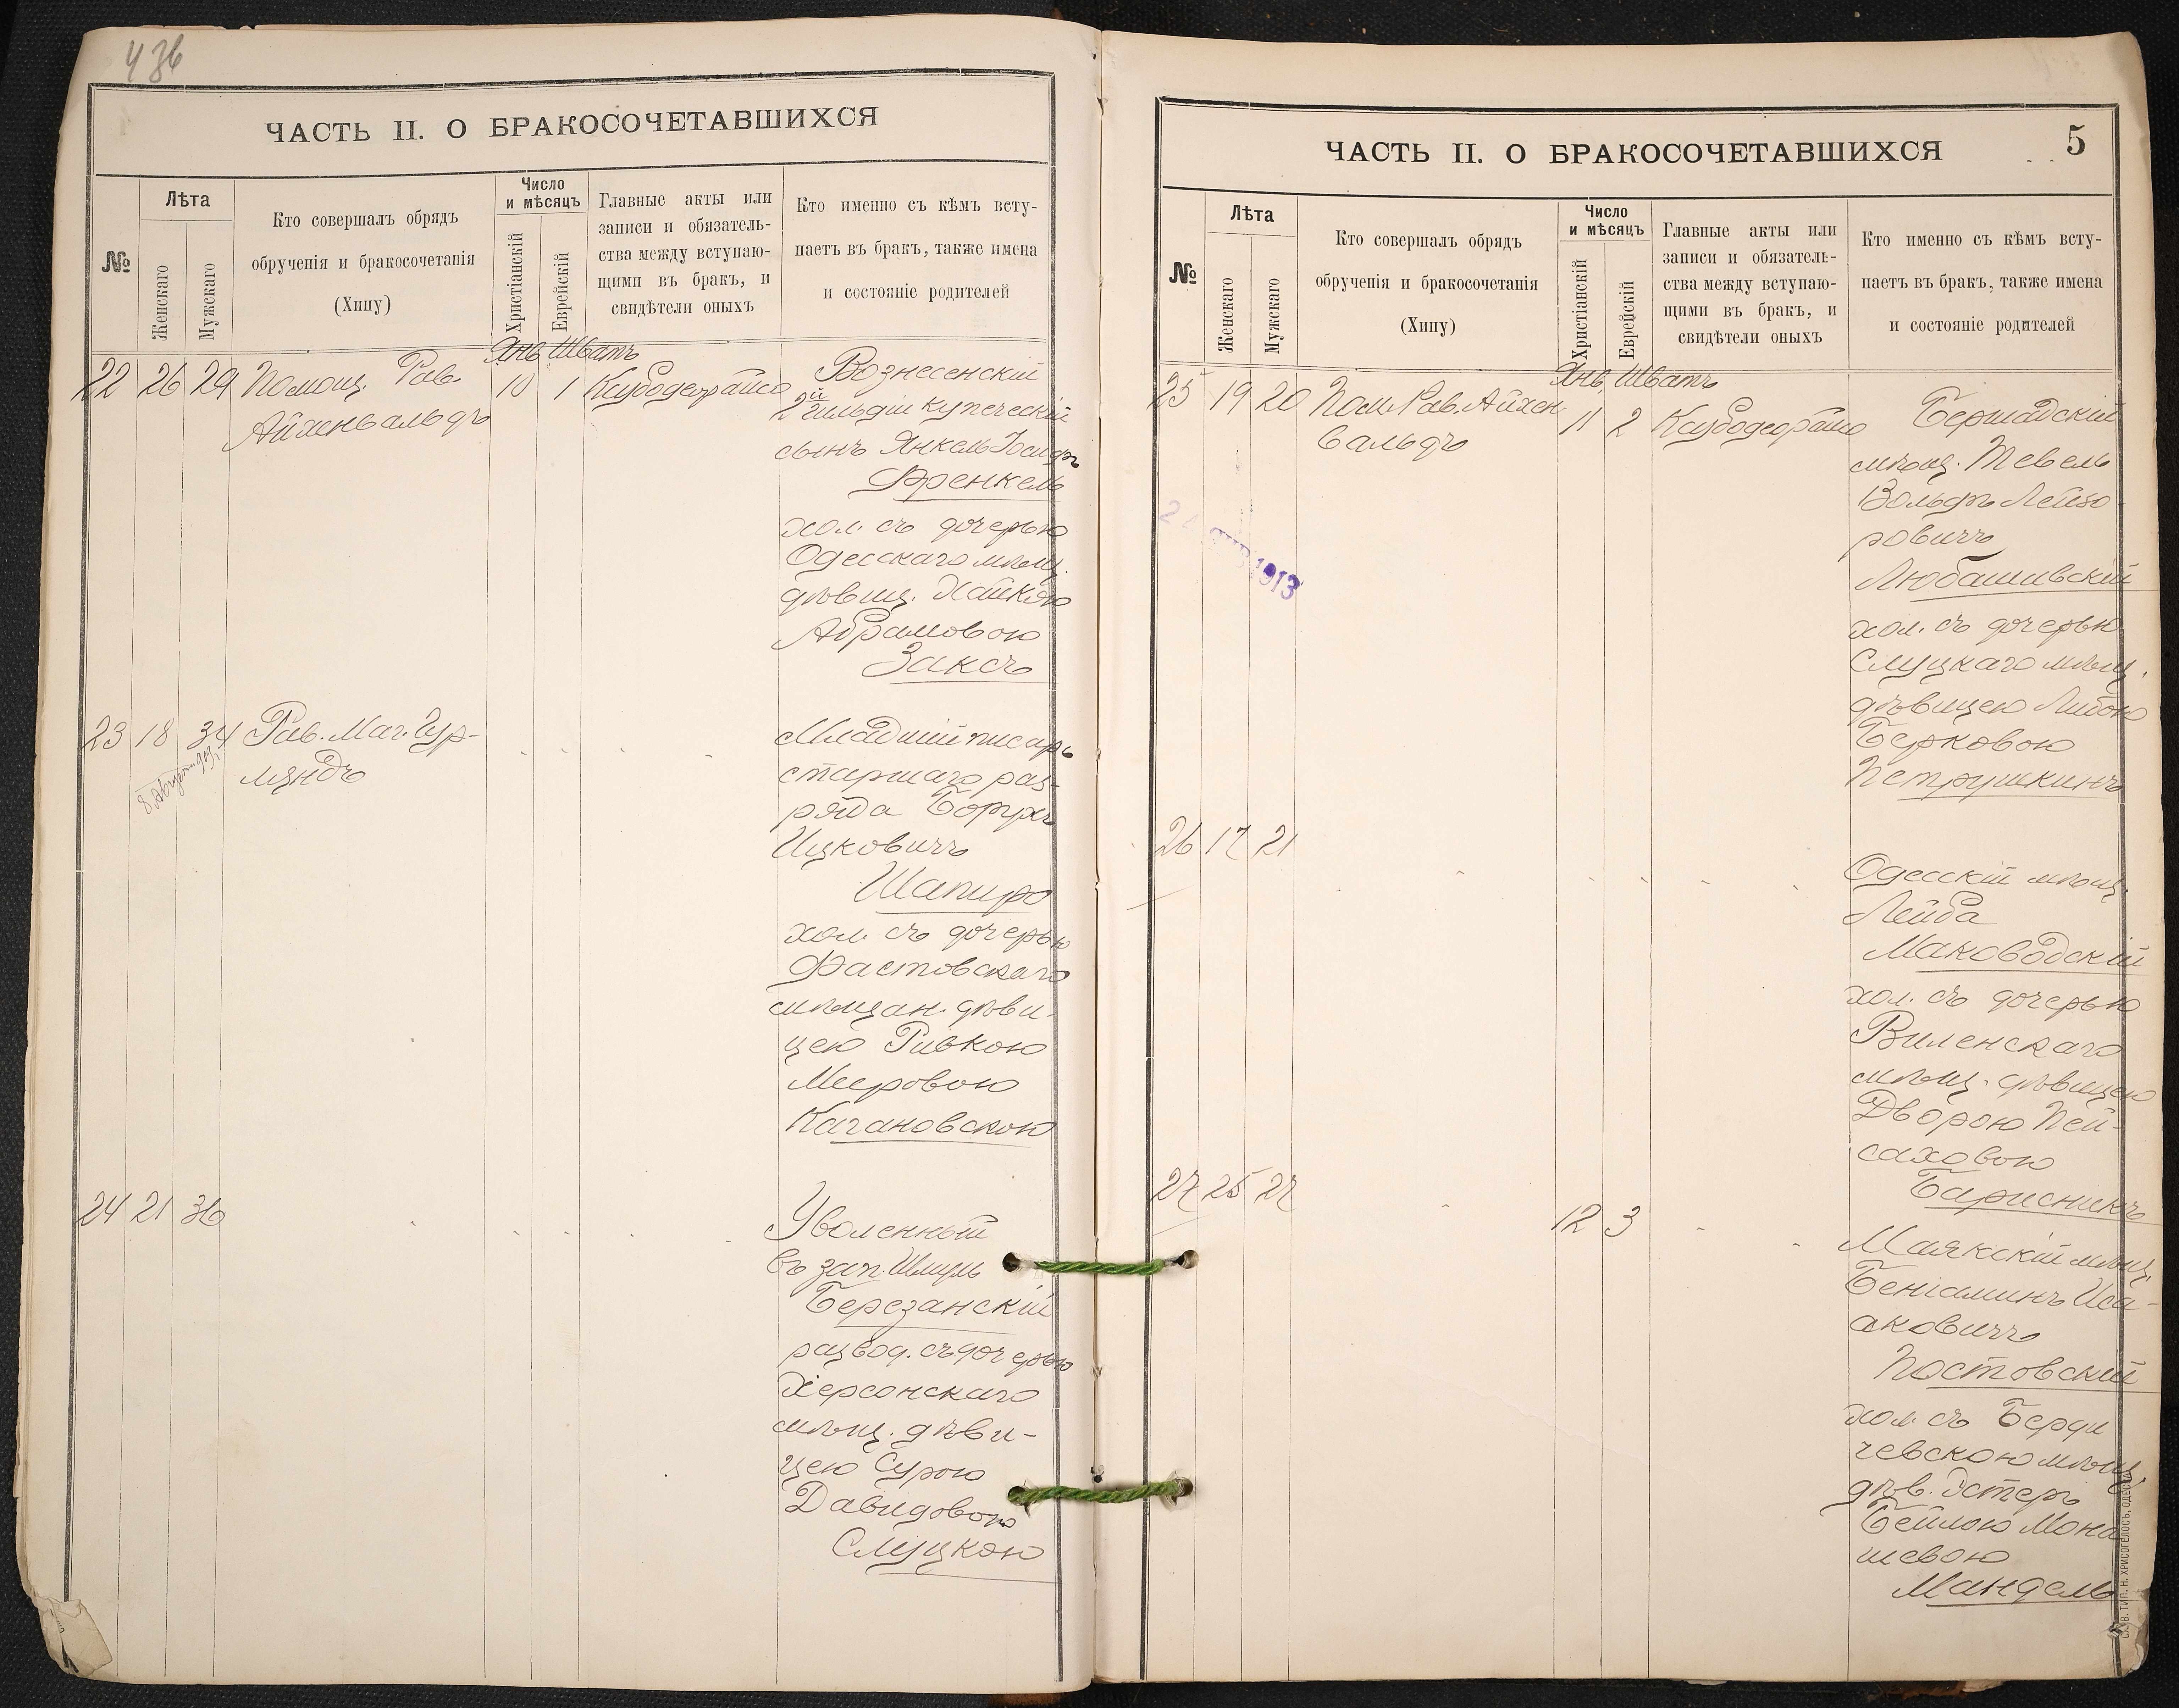 436
ЧАСТЬ II. О БРАКОСОЧЕТАВШИХСЯ
№
Лѣта
Женскаго
Мужскаго
Кто совершалъ обрядъ
обрученія и бракосочетанія
(Хипу)
Число
и мѣсяцъ
Христіанскій
Еврейскій
Главные акты или
записи и обязатель-
ства между вступаю-
щими въ бракъ, и
свидѣтели оныхъ
Кто именно съ кѣмъ всту-
паетъ въ бракъ, также имена
и состояніе родителей
Янв Шватъ
22 26 29 Помощ. Рав.
Айхенвальдъ
10 1
Вознесенскій
2й гильдіи купеческій
сынъ Янкель Іосифъ
Френкель
хол. съ дочерью
Одесскаго мѣщ.
дѣвиц. Хайкою
Абрамовою
Заксъ
23 18 34 Рав. Маг. Гур-
ляндъ
Младшій писарь
старшаго раз-
ряда Борухъ
Ицковичъ
Шапиро
хол. съ дочерью
Фастовскаго
мѣщан. дѣви-
цею Ривкою
Мееровою
Кагановскою
24 21 36
Уволенный
въ зап. Шмуль
Березанскій
развод. съ дочерью
Херсонскаго
мѣщ. дѣви-
цею Сурою
Давидовою
Слуцкою
ЧАСТЬ II. О БРАКОСОЧЕТАВШИХСЯ
5
№
Лѣта
Женскаго
Мужскаго
Кто совершалъ обрядъ
обрученія и бракосочетанія
(Хипу)
Число
и мѣсяцъ
Христіанскій
Еврейскій
Главные акты или
записи и обязатель-
ства между вступаю-
щими въ бракъ, и
свидѣтели оныхъ
Кто именно съ кѣмъ всту-
паетъ въ бракъ, также имена
и состояніе родителей
Янв. Шватъ
25 19 20 Пом. Рав. Айхен
вальдъ
11 2
1913
Бершадскій
мѣщ. Тевель
Вольфъ Лейзо-
ровичъ
Любашевскій
хол. съ дочерью
Слуцкаго мѣщ.
дѣвицею Либою
Берковою
Петрушкинъ
26 17 21
Одесскій мѣщ.
Лейба
Маководскій
хол. съ дочерью
Виленскаго
мѣщ. дѣвицею
Дворою Пей-
саховою
Барисникъ
27 25 27
12 3
Маякскій мѣщ.
Беніаминъ Иса-
аковичъ
Постовскій
хол. съ Берди
чевскою мѣщ.
дѣв. Эстеръ
Бейлою Мона
шевою
Мандель
ТИП. Н. ХРИСОГЕЛОСЪ, ОДЕССА